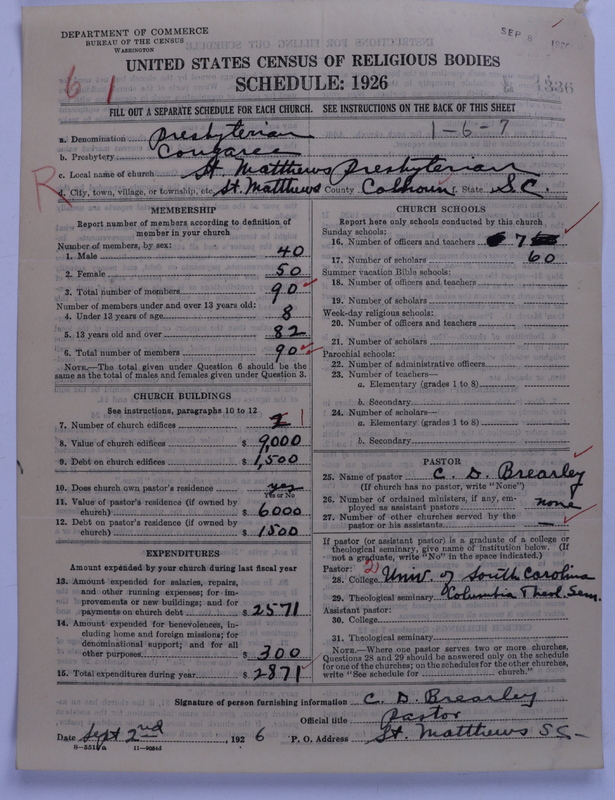 DEPARTMENT OF COMMERCE
BUREAU OF THE CENSUS
WASHINGTON
SEP 8 1926
UNITED STATES CENSUS OF RELIGIOUS BODIES
SCHEDULE: 1926
6 1
3 1336
FILL OUT A SEPARATE SCHEDULE FOR EACH CHURCH. SEE INSTRUCTIONS ON THE BACK OF THIS SHEET
1-6-7
a. Denomination Presbyterian
b. Presbytery Congaree
c. Local name of church St. Matthews Presbyterian
R
d. City, town, village, or township, etc. St. Matthews County Calhoun f. State S.C.
MEMBERSHIP
Report number of members according to definition of member in your church
Number of members, by sex:
1. Male 40
2. Female 50
3. Total number of members 90
Number of members under and over 13 years old:
4. Under 13 years of age 8
5. 13 years old and over 82
6. Total number of members 90
NOTE.—The total given under Question 6 should be
same as the total of males and females given under Question 3.
CHURCH BUILDINGS
See instructions, paragraphs 10 to 12
7. Number of church edifices 1
8. Value of church edifices $ 9,000
9. Debt on church edifices $ 1,500
10. Does church own pastor's residence? yes
Yes or No
11. Value of pastor's residence (if owned by
church) $ 6000
12. Debt on pastor's residence (if owned by
church) $ 1500
EXPENDITURES
Amount expended by your church during last fiscal year
13. Amount expended for salaries, repairs,
and other running expenses; for im-
provements or new buildings; and for
payments on church debt $ 2571
14. Amount expended for benevolences, in-
cluding home and foreign missions; for
denominational support; and for all
other purposes $ 300
15. Total expenditures during year $ 2871
CHURCH SCHOOLS
Report here only schools conducted by this church
Sunday schools:
16. Number of officers and teachers 7
17. Number of scholars 60
Summer vacation Bible schools:
18. Number of officers and teachers
19. Number of scholars
Week-day religious schools:
20. Number of officers and teachers
21. Number of scholars
Parochial schools:
22. Number of administrative officers
23. Number of teachers—
a. Elementary (grades 1 to 8)
b. Secondary
24. Number of scholars—
a. Elementary (grades 1 to 8)
b. Secondary
PASTOR
25. Name of pastor C. D. Brearley
(If church has no pastor, write "None")
26. Number of ordained ministers, if any, em-
ployed as assistant pastors none
27. Number of other churches served by the
pastor or his assistants —
If pastor (or assistant pastor) is a graduate of a college or
theological seminary, give name of institution below. (If
not a graduate, write "No" in the space indicated.)
Pastor: 2)
28. College Univ. of South Carolina
29. Theological seminary Columbia Theol. Sem.
Assistant pastor:
30. College
31. Theological seminary
NOTE.—Where one pastor serves two or more churches,
Questions 28 and 29 should be answered only on the schedule
for one of the churches; on the schedules for the other churches,
write "See schedule for ........ church."
Signature of person furnishing information C. D. Brearley
Official title Pastor
Date Sept 2nd, 1926 P. O. Address St. Matthews S.C.
8—551b/a 11—9034d